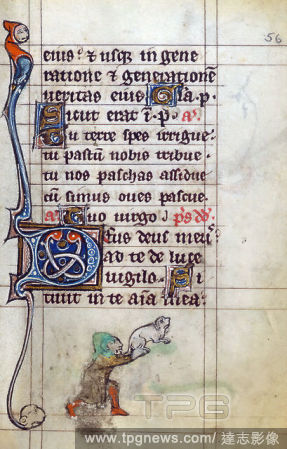 56
eius· et usq; in gene
ratione et generatione͞
veritas eius Gl̄a· p·
Sicut erat i͞· p· a͞·
Tu terre spes irrigue·
tu pastū nobis tribue·
tu nos paschas assidue
cū simus oues pascue·
a͞· Quo uirgo·
Deus deus meus·
ad te de luce
uigilo· Si
tiuit in te aīa mea·
TPG
www.tpgnews.com/達志影像